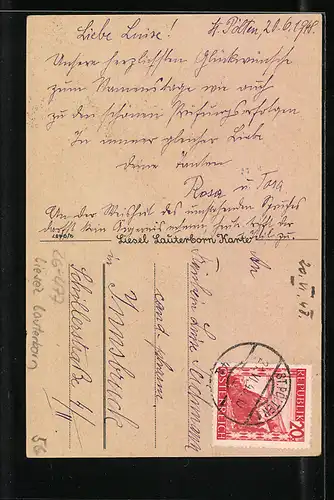 Liebe Luise! St. Pölten, 20.6.1948.
Unsere herzlichsten Glückwünsche
zum Namenstage wie auch
zu den schönen Prüfungserfolgen
In immer gleicher Liebe
deine Tanten
Rosa u Tora
An der Weisheit des umstehenden Spruches
darfst kein
zu.
Liesel Lauterborn Karte
An
Fräulein Luise
cand. pharm.
Innsbruck
Schillerstraße
20. VI. 48
ST. PÖLTEN
REPUBLIK
ÖSTERREICH
20
Liesel Lauterborn
56